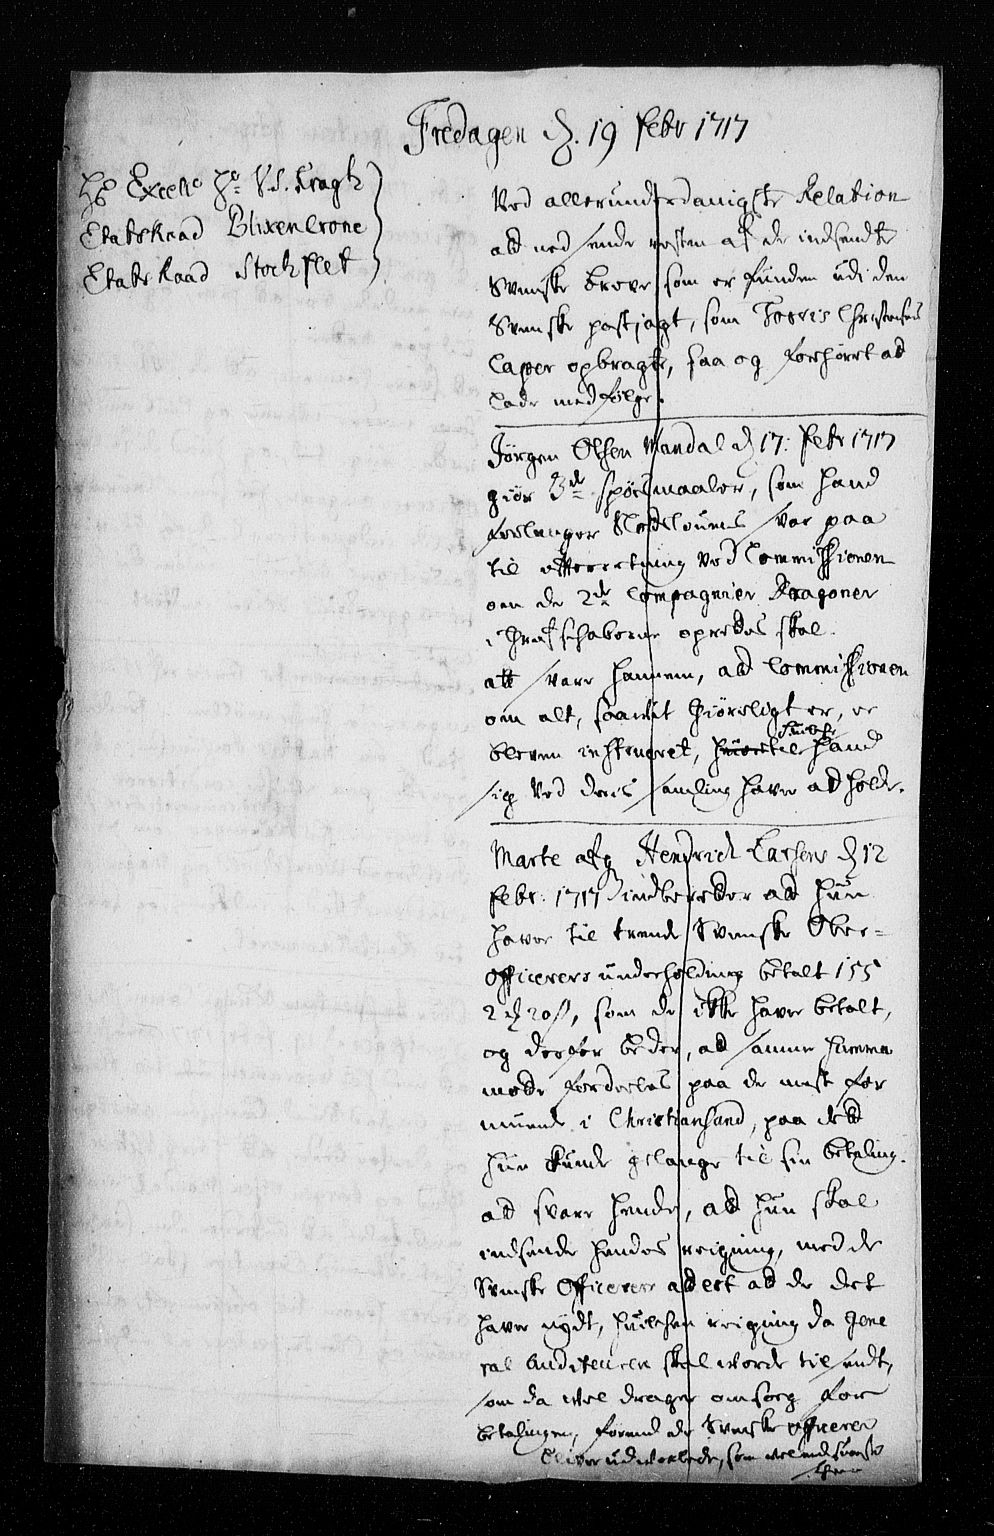 Fredagen d. 19 Febr 1717
Hs Excell. Hr. V. S. Kragh
Etatsraad Blixencrone
Etatz Raad Stochflet
Ved allerunderdanigste Relation
att ned sende resten af de indsendte
Svenske breve som er funden udi den
Svenske postjagt, som Torris Christensens
Caper opbragte, saa og forhørrt at
lade medfølge.
Jørgen Olsen Mandal d 17: Febr 1717
giør 3de spørsmaaler, som hand
forlanger Slodslouens svar paa
til efterretning ved Commissionen
om de 2de Compagnier Dragoner
i Grefschaberne oprettes skal.
att svare hannem, att Commissionen
om alt, saavit giørligt er, er
bleven instrueret, huortil hand
huorefter
sig ved deris samling haver att holde.
Marte afg Hendrich Larsens d 12
Febr: 1717 indberetter att hun
haver til trende Svenske Ober=
Officerers underholding betalt 155
2 d 20 s, som de ikke haver betalt,
og derfor beder, at samme summa
motte fordeeles paa de mest for
muende i Christiansand, paa dett
hun kunde gelange til sin betaling.
att svare hende, att hun skal
indsende hendes reigning, med de
Svenske Officerers attest att de det
haver nydt, huilchen reigning da Gene
ral Auditeuren skal worde tilsendt,
som da vel drager omsorg for
betalingen, førend de Svenske officerer
bliver udvexlede, som vel endsuenste